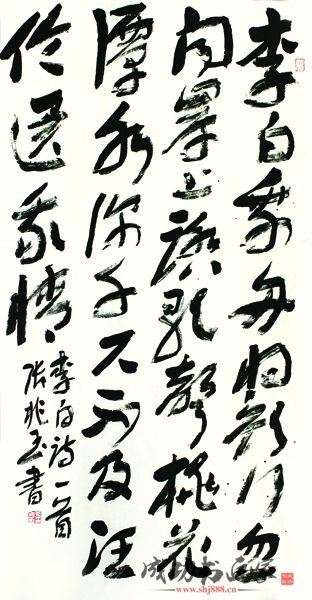 李白乘舟将欲行忽
闻岸上踏歌聲桃花
潭水深千尺不及汪
伦送我情
李白诗一首
张兆玉書
成功书画家
www.shj888.cn